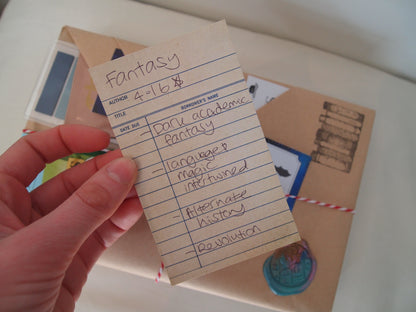 Fantasy
AUTHOR 4-16 $
TITLE
DATE DUE BORROWER'S NAME
- Dark academic
fantasy
- language &
magic
intertwined
- Alternate
history
- Revolution